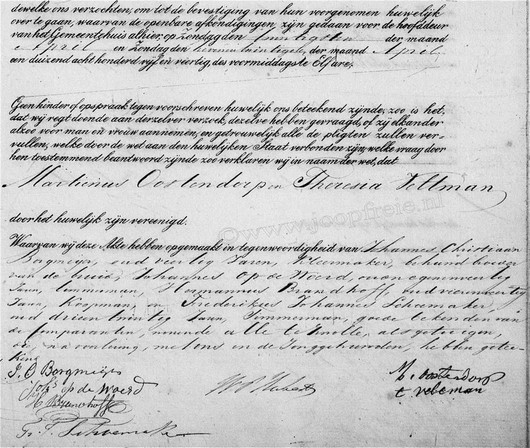 dewelke ons verzochten, om tot de bevestiging van hun voorgenomen huwelijk
over te gaan, waarvan de openbare afkondigingen, zijn gedaan voor de hoofddeur
van het Gemeentehuis alhier, op Zondag den twintigsten der maand
April en Zondag den zevenentwintigsten der maand April
een duizend acht honderd vijf en veertig, des voormiddags te Elf ure.
Geen hinder of opspraak tegen voorschreven huwelijk ons beteekend zijnde, zoo is het,
dat wij regt doende aan derzelver verzoek, dezelve hebben gevraagd, of zij elkander
alzoo voor man en vrouw aannemen, en getrouwelijk alle de pligten zullen ver-
vullen, welke door de wet aan den huwelijken Staat verbonden zijn, welke vraag door
hen toestemmend beantwoord zijnde zoo verklaren wij in naam der wet, dat
Martinus Oostendorp en Theresia Veltman
door het huwelijk zijn vereenigd.
Waarvan wij deze Akte hebben opgemaakt in tegenwoordigheid van Johannes Christiaan
Borgmeijer, oud veertig Jaren, Kleermaker, behuwd broeder
van de bruid, Johannes op de Woerd, oud
Jaren, timmerman, Hermannus Baardhoff, oud
Jaren, Koopman, en Frederikus Johannes Schoemaker,
oud drieentwintig Jaren, Timmerman, goede bekenden van
de Comparanten, wonende alle te
en, na voorlezing, met ons en de Jonggehuwden, hebben getee-
kend
J. C. Borgmeijer
Joh.s op de Woerd
M. Oostendorp
T veltman
www.joopfreie.nl